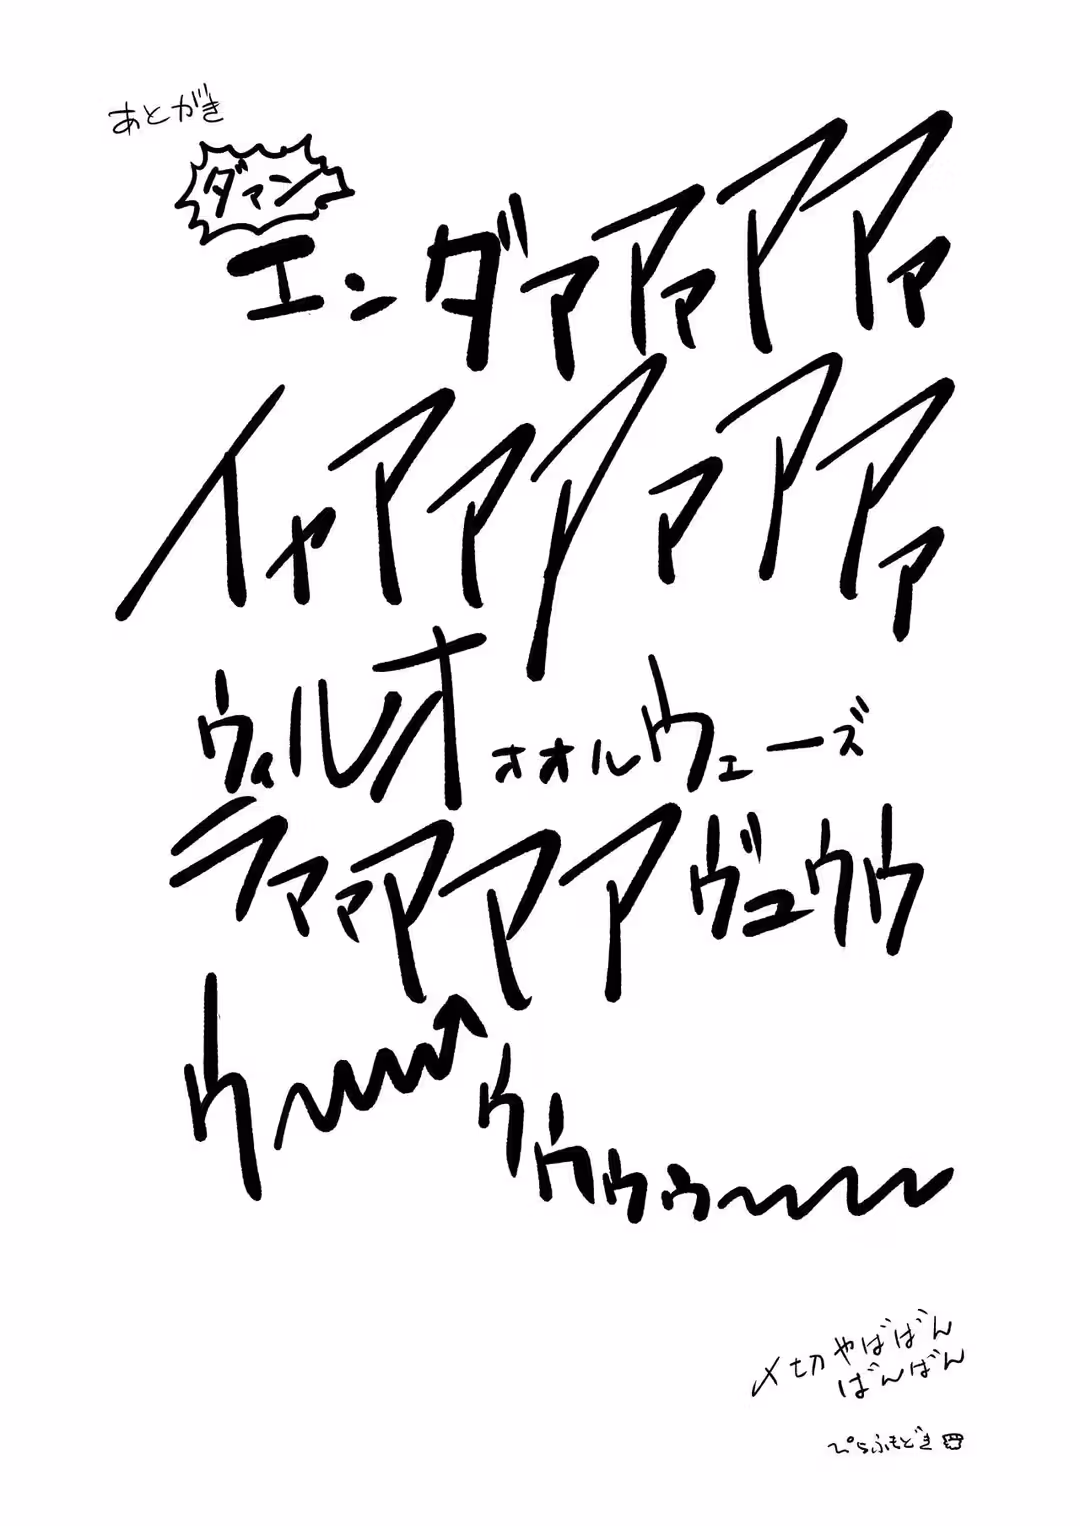 あとがき
ダァン
エンダァアァアアァ
イャアァアァアアァ
ウィルオォオルウェーズ
ラァァアアアヴュウウ
ウ〜〜〜↑ウウゥゥ〜〜〜
〆切やばばん
ばんばん
ぴらふもどき